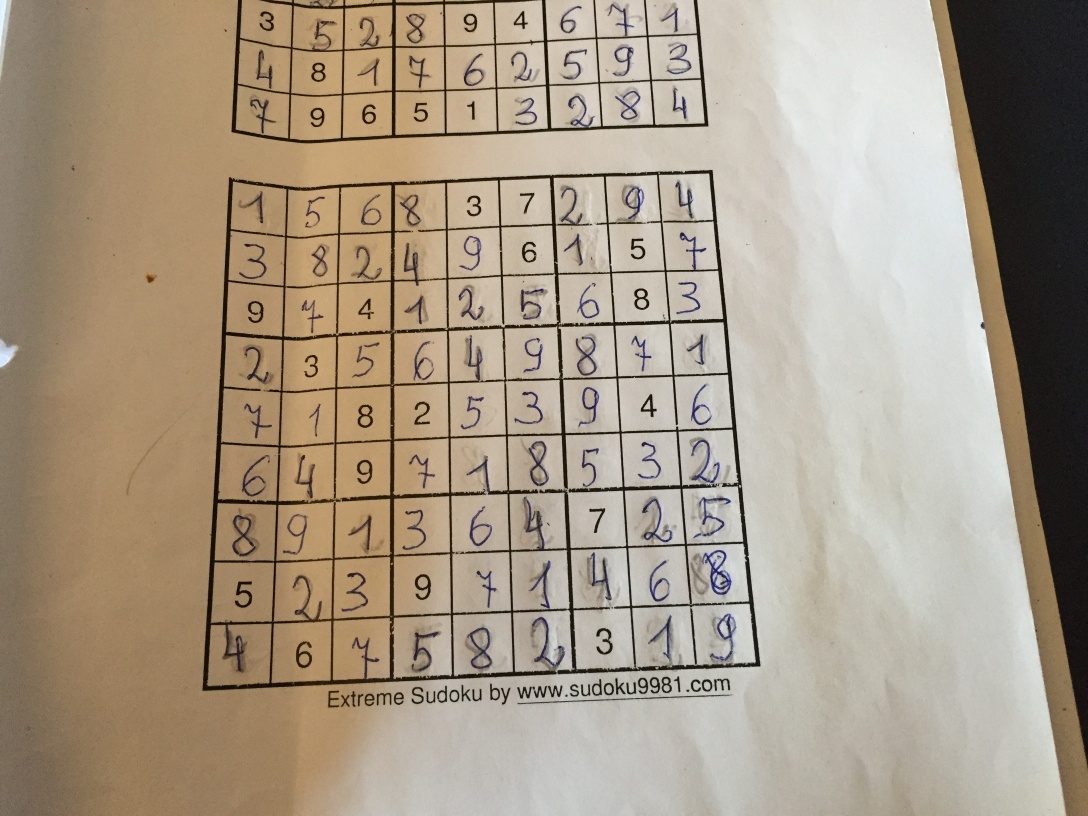 3 5 2 8 9 4 6 7 1
4 8 1 7 6 2 5 9 3
7 9 6 5 1 3 2 8 4
1 5 6 8 3 7 2 9 4
3 8 2 4 9 6 1 5 7
9 7 4 1 2 5 6 8 3
2 3 5 6 4 9 8 7 1
7 1 8 2 5 3 9 4 6
6 4 9 7 1 8 5 3 2
8 9 1 3 6 4 7 2 5
5 2 3 9 7 1 4 6 8
4 6 7 5 8 2 3 1 9
Extreme Sudoku by www.sudoku9981.com